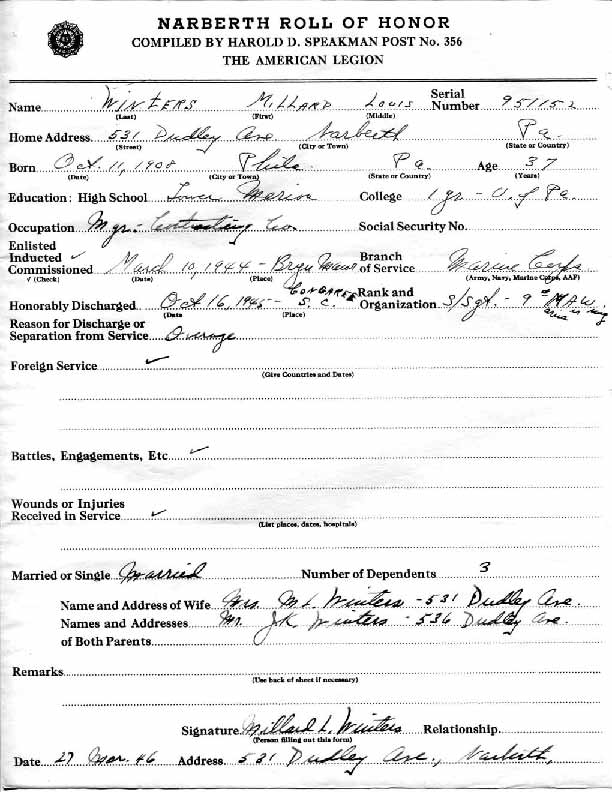 NARBERTH ROLL OF HONOR
COMPILED BY HAROLD D. SPEAKMAN POST No. 356
THE AMERICAN LEGION
Name WINTERS MILLARD LOUIS Serial Number 951152
(Last) (First) (Middle)
Home Address 531 Dudley Ave Narberth Pa.
(Street) (City or Town) (State or Country)
Born Oct. 11, 1908 Phila Pa. Age 37
(Date) (City or Town) (State or Country) (Years)
Education: High School Lower Merion College 1 yr - U. of Pa.
Occupation Mgr. - Contracting Co. Social Security No.
Enlisted
Inducted ✓ Branch
Commissioned March 10, 1944 - Bryn Mawr of Service Marine Corps
✓ (Check) (Date) (Place) (Army, Navy, Marine Corps, AAF)
CONGAREE Rank and
Honorably Discharged Oct 16, 1945 - S. C. Organization S/Sgt. - 9th M.A.W.
(Date (Place)
Reason for Discharge or
Separation from Service Overage
Foreign Service ✓
(Give Countries and Dates)
Battles, Engagements, Etc. ✓
Wounds or Injuries
Received in Service ✓
(List places, dates, hospitals)
Married or Single Married Number of Dependents 3
Name and Address of Wife Mrs. M. L. Winters - 531 Dudley Ave.
Names and Addresses Mr. J.K. Winters - 536 Dudley Ave.
of Both Parents
Remarks
(Use back of sheet if necessary)
Signature Millard L. Winters Relationship
(Person filling out this form)
Date 27 Mar. 46 Address 531 Dudley Ave., Narberth,